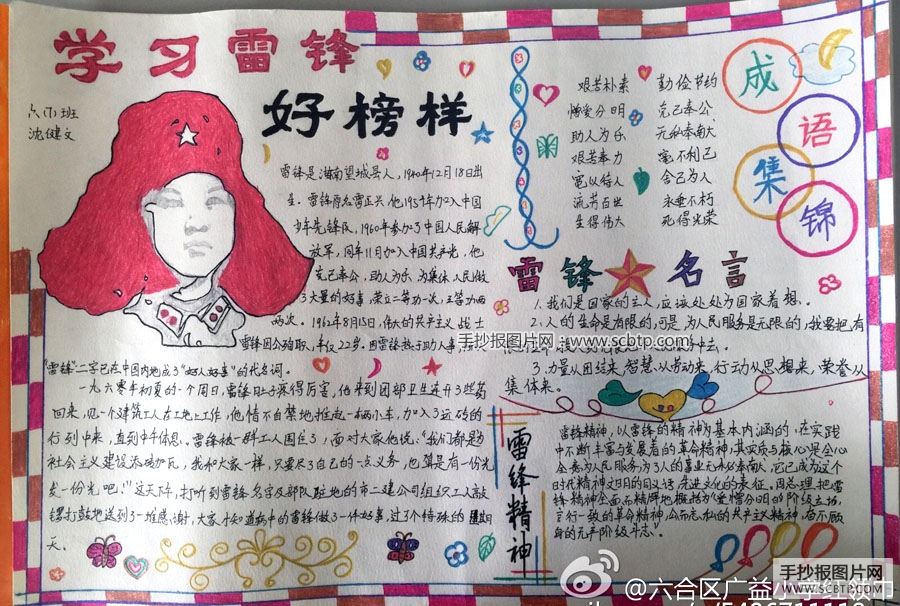 学习雷锋
好榜样
六(1)班
沈健文
雷锋是湖南望城县人,1940年12月18日出
生。雷锋原名雷正兴,他1954年加入中国
少年先锋队,1960年参加了中国人民解
放军,同年11月加入中国共产党,他
克己奉公,助人为乐,为集体,人民做
了大量的好事,荣立二等功一次,三等功两
两次。1962年8月15日,伟大的共产主义战士
雷锋因公殉职,年仅22岁。因雷锋热于助人事
"雷锋"二字已在中国内地成了"好人好事"的代名词。
一九六零年初夏的一个周日,雷锋肚子疼得厉害,他来到团部卫生连开了些药
回来,见一个建筑工人在工地上工作,他情不自禁地推起一辆小车,加入了运砖的
行列中来,直到中午休息。雷锋被一群工人围住了,面对大家他说:"我们都是为
社会主义建设添砖加瓦,我和大家一样,只要尽了自己的一点义务,也算是有一份光
发一份光吧!"这天下午,打听到雷锋名字及部队驻地的市二建公司组织工人敲
锣打鼓地送到了一堆感谢,大家才知道病中的雷锋做了一件好事,过了个特殊的星期
天。
艰苦朴素 勤俭节约
憎爱分明 克己奉公
助人为乐 无私奉献
艰苦奋力 毫不利己
宽以待人 舍己为人
流芳百世 永垂不朽
生得伟大 死得光荣
成语集锦
雷锋名言
1.我们是国家的主人,应该处处为国家着想。
2.人的生命是有限的,可是,为人民服务是无限的,我要把有
3.力量从团结来,智慧从劳动来,行动从思想来,荣誉从
集体来。
雷锋精神
雷锋精神,以雷锋的精神为基本内涵的,在实践
中不断丰富与发展着的革命精神,其实质与核心是全心
全意为人民服务,为了人的事业无私奉献,它已成为这个
时代精神文明的同义语,先进文化的表征。周总理把雷
锋精神全面而精辟地概括为"爱憎分明的阶级立场,
言行一致的革命精神,公而忘私的共产主义精神,奋不顾
身的无产阶级斗志"。
手抄报图片网
www.scbtp.com
手抄报图片网
www.scbtp.com
@六合区广益小学红领巾